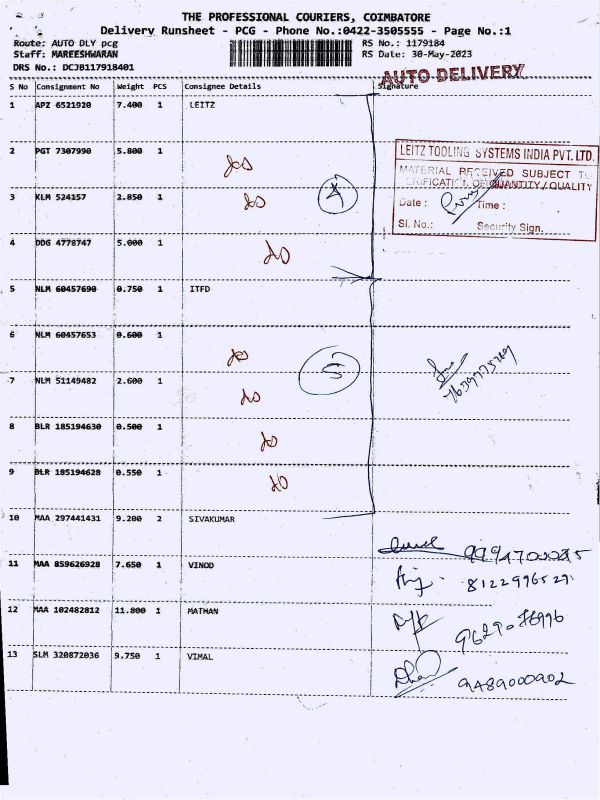 THE PROFESSIONAL COURIERS, COIMBATORE
Delivery Runsheet - PCG - Phone No.:0422-3505555 - Page No.:1
Route: AUTO DLY pcg RS No.: 1179184
Staff: MAREESHWARAN RS Date: 30-May-2023
DRS No.: DCJB117918401
AUTO DELIVERY
S No Consignment No Weight PCS Consignee Details Signature
1 APZ 6521920 7.400 1 LEITZ
LEITZ TOOLING SYSTEMS INDIA PVT. LTD.
2 PGT 7307990 5.800 1
do
MATERIAL RECEIVED SUBJECT TO
VERIFICATION OF QUANTITY / QUALITY
3 KLM 524157 2.850 1 do 4
Date : Time :
Sl. No.: Security Sign.
4 DDG 4778747 5.000 1 do
5 NLM 60457690 0.750 1 ITFD
6 NLM 60457653 0.600 1 do
5
7 NLM 51149482 2.600 1 do
8 BLR 185194630 0.500 1 do
9 BLR 185194628 0.550 1 do
10 MAA 297441431 9.200 2 SIVAKUMAR
11 MAA 859626928 7.650 1 VINOD
8122996529
12 MAA 102482812 11.800 1 MATHAN
13 SLM 320872036 9.750 1 VIMAL
9489000902